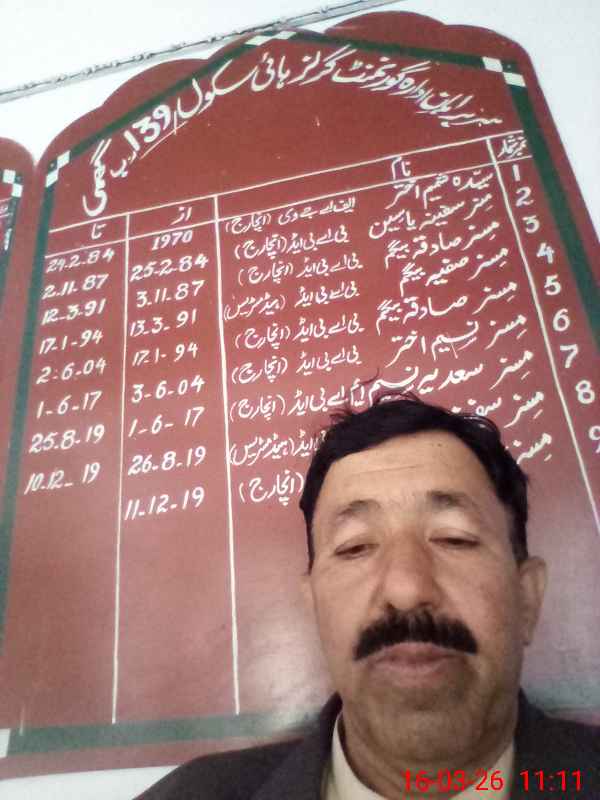 سربراہان ادارہ گورنمنٹ گرلز ہائی سکول 139 گھمی
نمبر شمار نام از تا
1 سیدہ شمیم اختر ایف اے جے وی (انچارج) 1970 24.2.84
2 مسز سفینہ یاسین بی اے بی ایڈ (انچارج) 25-2-84 2.11.87
3 مسز صادقہ بیگم بی اے بی ایڈ (انچارج) 3.11.87 12-3.91
4 مسز صفیہ بیگم بی اے بی ایڈ (ہیڈمسٹریس) 13.3-91 17.1-94
5 مسز صادقہ بیگم بی اے بی ایڈ (انچارج) 17.1-94 2-6-04
6 مسز نسیم اختر بی اے بی ایڈ (انچارج) 3-6-04 1-6-17
7 مسز سعدیہ نسیم اے بی ایڈ (انچارج) 1-6-17 25.8-19
8 مسز (ہیڈمسٹریس) 26.8-19 10.12-19
9 مسز (انچارج) 11-12-19
16-03-26 11:11